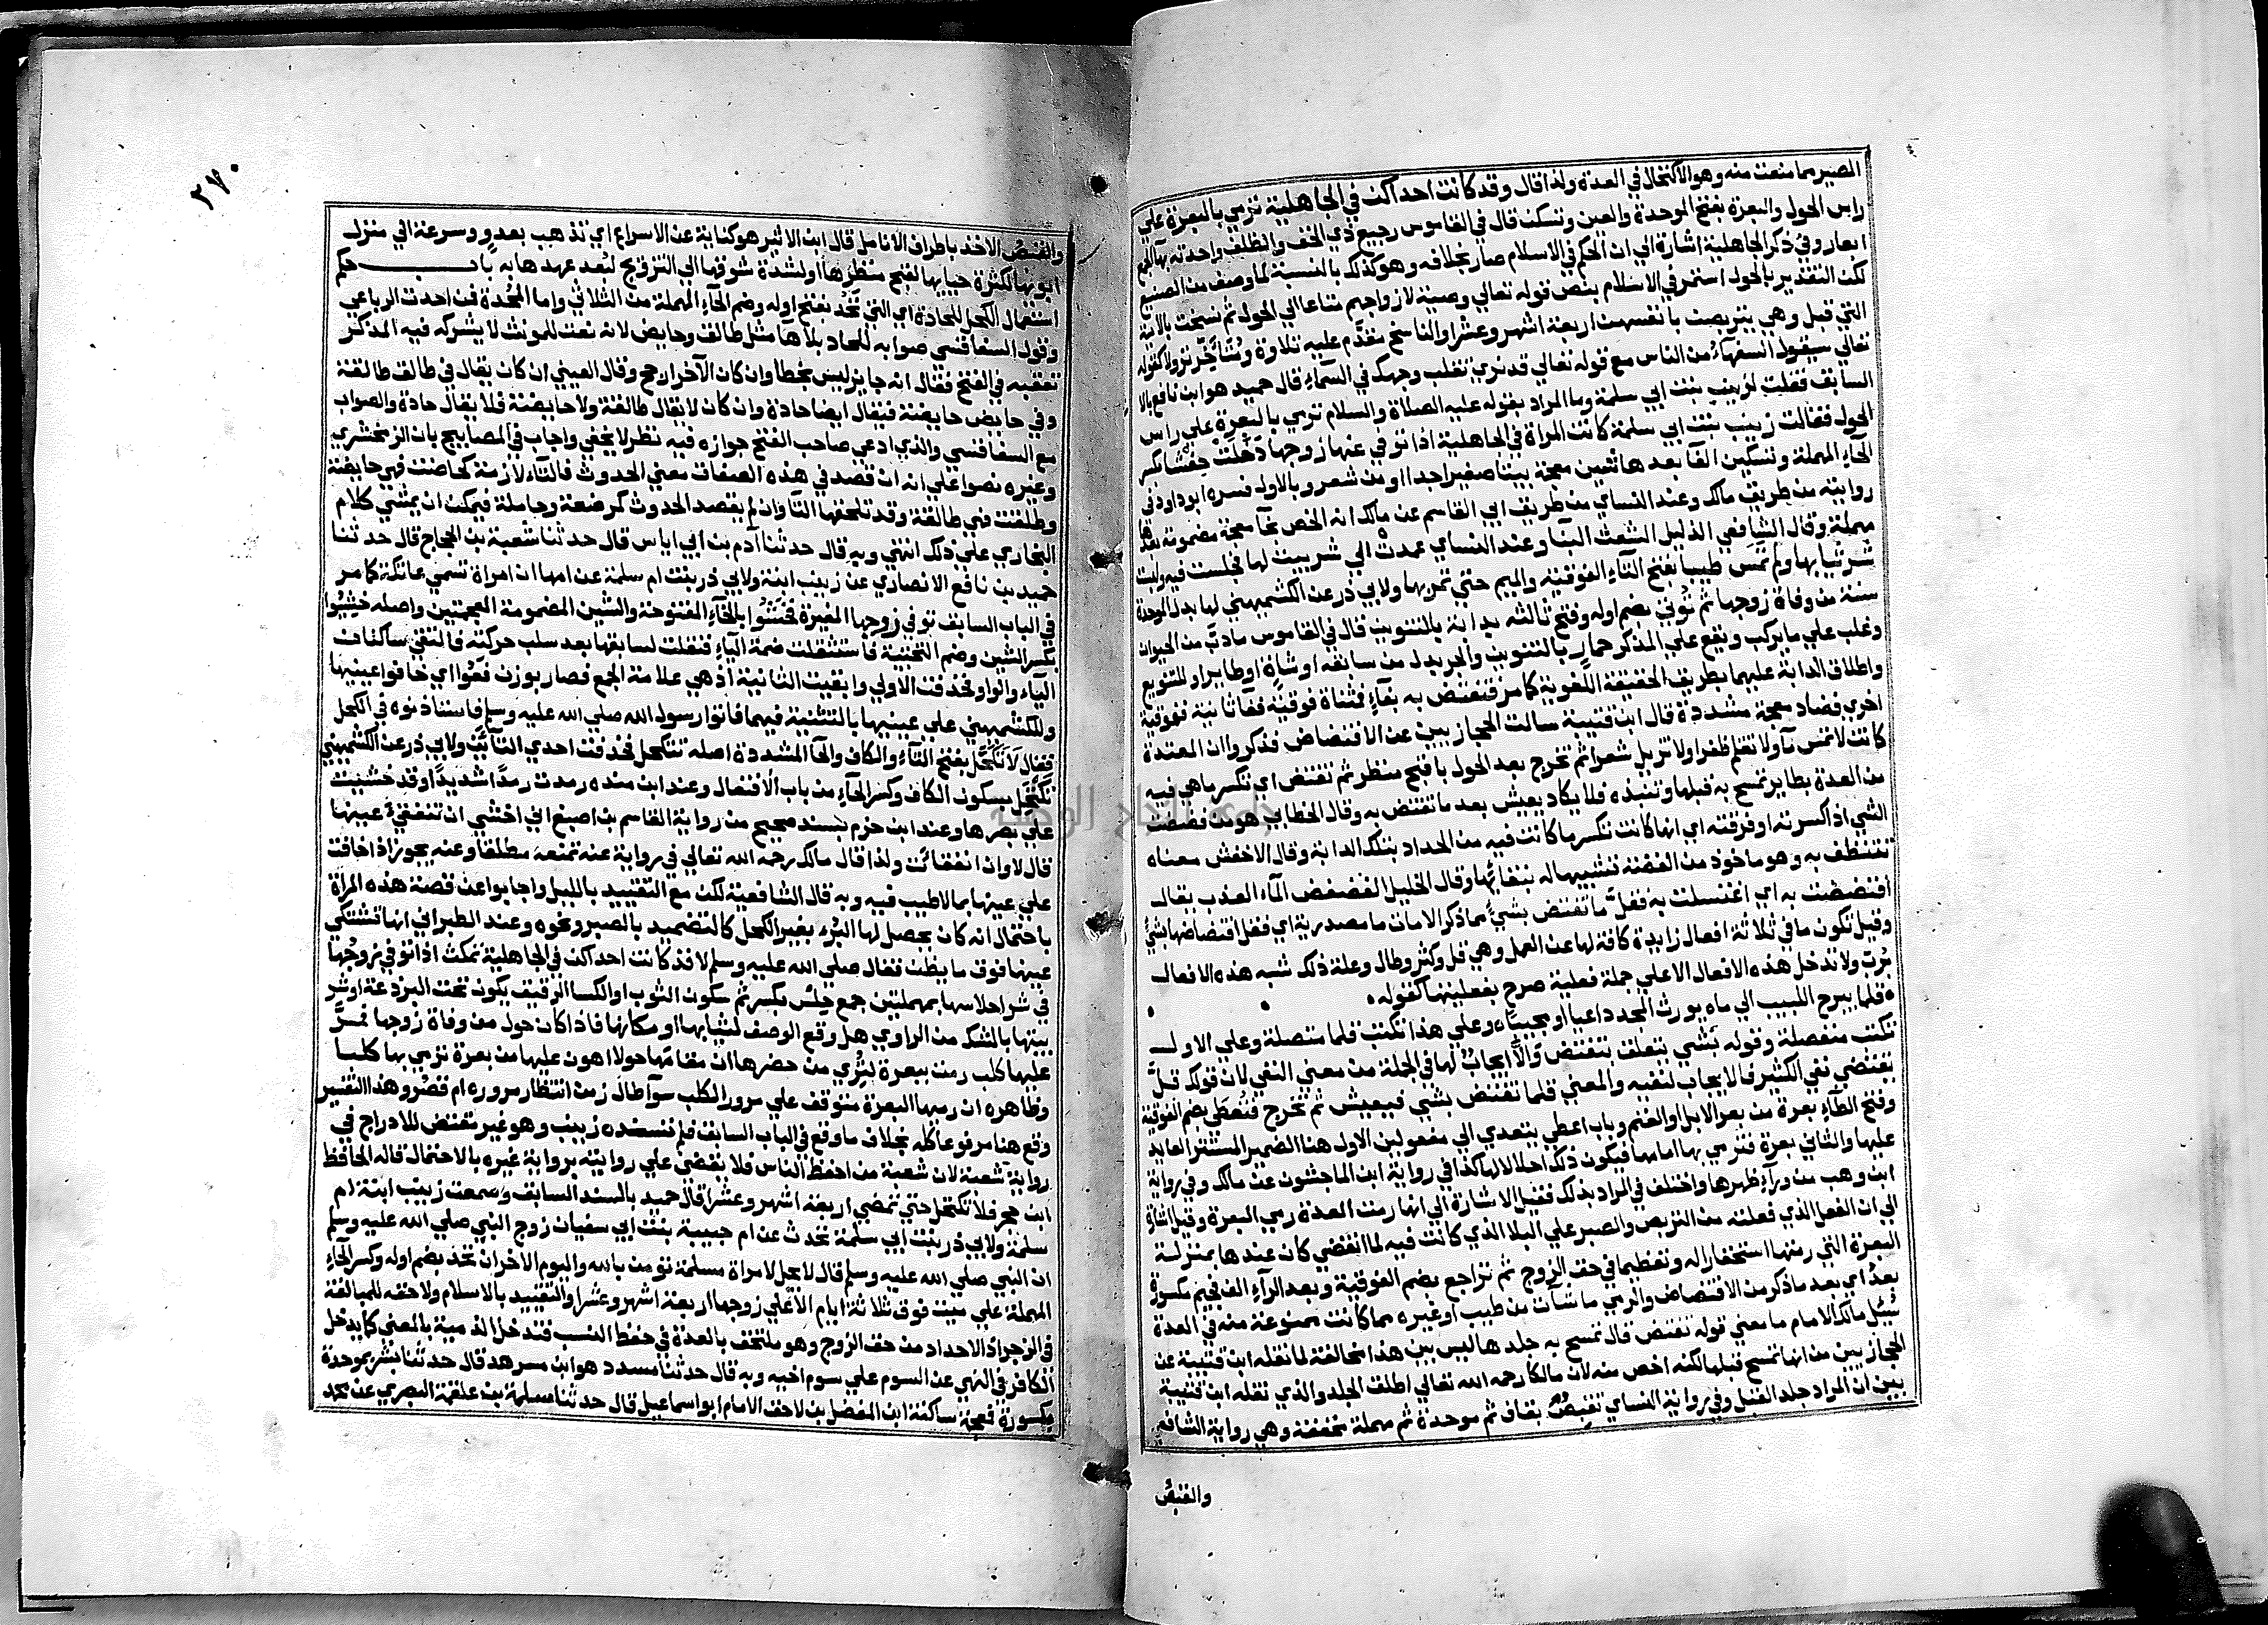 الصبر مما منعت منه وهو الاكتحال في العدة ولذا قال وقد كانت احداكن في الجاهلية ترمي بالبعرة علي
راس الحول والبعرة بفتح الموحدة والعين وتسكن قال في القاموس رجيع ذي الخف والظلف واحدته بهآ الجمع
ابعار وفي ذكر الجاهلية اشارة الي ان الحكم في الاسلام صار بخلافه وهو كذلك بالنسبة لما وصف من الصنيع
لكن التقدير بالحول استمر في الاسلام بنص قوله تعالي وصية لازواجهم متاعا الي الحول ثم نسخت بالاية
التي قبل وهي يتربصن بانفسهن اربعة اشهر وعشرا والناسخ مقدم عليه تلاوة ومتاخر نزولا كقوله
تعالي سيقول السفهآء من الناس مع قوله تعالي قد نري تقلب وجهك في السمآء قال حميد هو ابن نافع بالا
السابق فقلت لزينب بنت ابي سلمة وما المراد بقوله عليه الصلاة والسلام ترمي بالبعرة علي راس
الحول فقالت زينب بنت ابي سلمة كانت المراة في الجاهلية اذا توفي عنها زوجها دخلت حفشا بكسر
الحآء المهملة وتسكين الفآ بعدها شين معجمة بيتا صغيرا جدا او من شعر وبالاول فسره ابوداود في
روايته من طريق مالك وعند النساي من طريق ابي القاسم عن مالك انه الخص بخآ معجمة مضمومة بعدها
مهملة وقال الشافعي الذليل الشعث البنآ وعند النساي عمدت الي شر بيت لها فجلست فيه ولبست
شر ثيابها ولم تمس طيبا بفتح التآء الفوقية والميم حتي تمر بها ولابي ذر عن الكشميهني لها بدل الموحدة
سنة من وفاة زوجها ثم تؤتي بضم اوله وفتح ثالثه بدابة بالتنوين قال في القاموس ما دب من الحيوان
وغلب علي ما يركب ويقع علي المذكر حمار بالتنوين والجر بدل من سابقه او شاة او طاير او للتنويع
واطلاق الدابة عليهما بطريق الحقيقة اللغوية كما مر فتفتض به بفآء فمثناة فوقية ففآ ثانية ففوقية
اخري فضاد معجمة مشددة قال ابن قتيبة سالت الحجازيين عن الافتضاض فذكروا ان المعتدة
كانت لا تمس مآ ولا تقلم ظفرا ولا تزيل شعرا ثم تخرج بعد الحول باقبح منظر ثم تفتض اي تكسر ما هي فيه
من العدة بطاير تمسح به قبلها وتنبذه فلا يكاد يعيش بعد ما تفتض به وقال الخطابي هو من فضضت
الشي اذا كسرته او فرقته اي انها كانت تكسر ما كانت فيه من الحداد بتلك الدابة وقال الاخفش معناه
تتنظف به وهو ماخوذ من الفضة تشبيها له بنقائها وقال الخليل الفضفض المآء العذب يقال
افتضضت به اي اغتسلت به فقل ما تفتض بشيء مما ذكر الا مات ما مصدرية اي فقل افتضاضها بشي
وقيل تكون ما في ثلاثة افعال زايدة كافة لها عن العمل وهي قل وكثر وطال وعلة ذلك شبه هذه الافعال
برب ولا تدخل هذه الافعال الا علي جملة فعلية صرح بفعليتها كقوله
قلما يبرح اللبيب الي ما يورث المجد داعيا او مجيبا وعلي هذا تكتب قلما متصلة وعلي الاول
تكتب منفصلة وقوله بشي يتعلق بتفتض والا ايجاب لها في الجملة من معني النفي لان قولك قل
يقتضي نفي الكثير فالايجاب لنفيه والمعني قلما تفتض بشي فيعيش ثم تخرج فتعطي بضم الفوقية
وفتح الطآء بعرة من بعر الابل او الغنم وباب اعطي يتعدي الي مفعولين الاول هنا الضمير المستتر العايد
عليها والثاني بعرة فترمي بها امامها فيكون ذلك احلالا لها كذا في رواية ابن الماجشون عن مالك وفي رواية
ابن وهب من ورآء ظهرها واختلف في المراد بذلك فقيل الاشارة الي انها رمت العدة رمي البعرة وقيل اشارة
الي ان الفعل الذي فعلته من التربص والصبر علي البلا الذي كانت فيه لما انقضي كان عندها بمنزلة
البعرة التي رمتها استحقارا له وتعظيما في حق الزوج ثم تراجع بضم الفوقية وبعد الرآء الف فجيم مكسورة
بعد اي بعد ما ذكر من الافتضاض والرمي ما شآت من طيب او غيره مما كانت ممنوعة منه في العدة
سئل مالك الامام ما معني قوله تفتض قال تمسح به جلدها ليس بين هذا مخالفة لما نقله ابن قتيبة عن
الحجازيين من انها تمسح قبلها لكنه اخص منه لان مالكا رحمه الله تعالي اطلق الجلد والذي نقله ابن قتيبة
بين ان المراد جلد القبل وفي رواية النساي تقبص بقاف ثم موحدة ثم مهملة مخففة وهي رواية الشافعي
والقبص
٢٧٠
والقبص الاخذ باطراف الانامل قال ابن الاثير هو كناية عن الاسراع اي تذهب بعدو وسرعة الي منزل
ابويها لكثرة حيايها لقبح منظرها او لشدة شوقها الي التزويج لبعد عهدها به باب حكم
استعمال الكحل للحادة اي التي تحد بفتح اوله وضم الحآء المهملة من الثلاثي واما المحدة فمن احدت الرباعي
وقول السفاقسي صوابه للحاد بلا ها مثل طالق وحايض لانه نعت للمونث لا يشركه فيه المذكر
تعقبه في الفتح فقال انه جايز ليس بخطا وان كان الآخر ارجح وقال العيني ان كان يقال في طالق طالقة
وفي حايض حايضة فيقال ايضا حادة وان كان لا يقال طالقة ولا حايضة فلا يقال حادة والصواب
مع السفاقسي والذي ادعي صاحب الفتح جوازه فيه نظر لا يخفي واجاب في المصابيح بان الزمخشري
وغيره نصوا علي انه ان قصد في هذه الصفات معني الحدوث فالتآء لازمة كحاضت فهي حايضة
وطلقت فهي طالقة وقد تلحقها التآ وان لم يقصد الحدوث كمرضعة وحاملة فيمكن ان يمشي كلام
البخاري علي ذلك انتهي وبه قال حدثنا آدم بن ابي اياس قال حدثنا شعبة بن الحجاج قال حدثنا
حميد بن نافع الانصاري عن زينب ابنة ولابي ذر بنت ام سلمة عن امها ان امراة تسمي عاتكة كما مر
في الباب السابق توفي زوجها المغيرة فخشوا بالخآء المفتوحة والشين المضمومة المعجمتين واصله خشيوا
بكسر الشين وضم التحتية فاستثقلت ضمة اليآء فنقلت لسابقها بعد سلب حركته فالتقي ساكنان
اليآء والواو فحذفت الاولي وابقيت الثانية اذ هي علامة الجمع فصار بوزن فعوا اي خافوا عينيها
وللكشميهني علي عينيها بالتثنية فيهما فاتوا رسول الله صلي الله عليه وسلم فاستاذنوه في الكحل
فقال لا تكحل بفتح التآء والكاف والحآ المشددة اصله تتكحل فحذفت احدي التآئين ولابي ذر عن الكشميهني
تكتحل بسكون الكاف وكسر الحآء من باب الافتعال وعند ابن منده رمدت رمدا شديدا وقد خشيت
علي بصرها وعند ابن حزم بسند صحيح من رواية القاسم بن اصبغ اني اخشي ان تنفقي عينها
قال لا وان انفقأت ولذا قال مالك رحمه الله تعالي في رواية عنه تمنعه مطلقا وعنه يجوز اذا خافت
علي عينها بما لا طيب فيه وبه قال الشافعية لكن مع التقييد بالليل واجابوا عن قصة هذه المرأة
باحتمال انه كان يحصل لها البرء بغير الكحل كالتضميد بالصبر ونحوه وعند الطبراني انها تشتكي
عينها فوق ما يظن فقال صلي الله عليه وسلم لا قد كانت احداكن في الجاهلية تمكث اذا توفي زوجها
في شر احلاسها بمهملتين جمع حلس بكسر ثم سكون الثوب او الكسا الرقيق يكون تحت البرذعة او شر
بيتها بالشك من الراوي هل وقع الوصف لثيابها او مكانها فاذا كان حول من وفاة زوجها فمر
عليها كلب رمت ببعرة لتري من حضرها ان مقامها حولا اهون عليها من بعرة ترمي بها كلبا
وظاهره ان رميها البعرة متوقف علي مرور الكلب سوآ طال زمن انتظار مروره ام قصر وهذا التفسير
وقع هنا مرفوعا كله بخلاف ما وقع في الباب السابق فلم تسنده زينب وهو غير مقتض للادراج في
رواية شعبة لان شعبة من احفظ الناس فلا يقضي علي روايته برواية غيره بالاحتمال قاله الحافظ
ابن حجر فلا تكتحل حتي تمضي اربعة اشهر وعشرا قال حميد بالسند السابق وسمعت زينب ابنة ام
سلمة ولابي ذر بنت ابي سلمة تحدث عن ام حبيبة بنت ابي سفيان زوج النبي صلي الله عليه وسلم
ان النبي صلي الله عليه وسلم قال لا يحل لامراة مسلمة تومن بالله واليوم الاخر ان تحد بضم اوله وكسر الحآء
المهملة علي ميت فوق ثلاثة ايام الا علي زوجها اربعة اشهر وعشرا والتقييد بالاسلام ولاحقه للمبالغة
في الزجر اذ الاحداد من حق الزوج وهو ملتحق بالعدة في حفظ النسب فتدخل الذمية بالمعني كما يدخل
الكافر في النهي عن السوم علي سوم اخيه وبه قال حدثنا مسدد هو ابن مسرهد قال حدثنا بشر بموحدة
مكسورة فمعجمة ساكنة ابن المفضل بن لاحق الامام ابو اسماعيل قال حدثنا سلمة بن علقمة البصري عن محمد